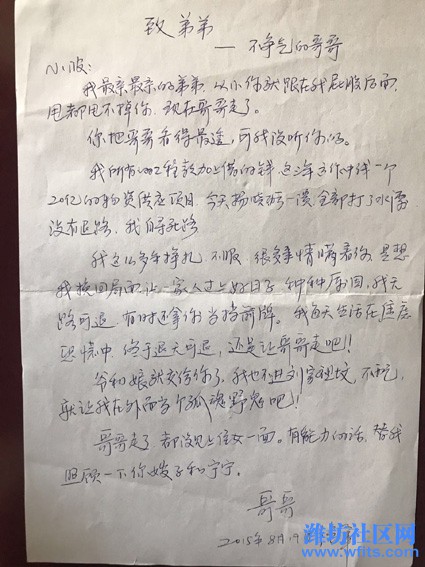 致弟弟
— 不争气的哥哥
小波:
我最亲最亲的弟弟,从小你就跟在我屁股后面,
甩都甩不掉你,现在哥哥走了。
你把哥哥看得最透,可我没听你的。
我所有的工程款加上借的钱
20亿的物资供应项目,今天
全部打了水漂
没有退路,我自寻死路
我这么多年挣扎,不服,很多事情瞒着你,是想
我挽回局面让一家人过上好日子,种种原因,我无
路可退,有时还拿你当挡箭牌。我每天生活在
恐慌中,终于退无可退,还是让哥哥走吧!!
爷和娘就交给你了,我也不进刘家祖坟,不配,
就让我在外面当个孤魂野鬼吧!
哥哥走了,都没见上侄女一面。有能力的话,替我
照顾一下你嫂子和宁宁。
哥哥
2015年8月19
潍坊社区网
www.wfits.com